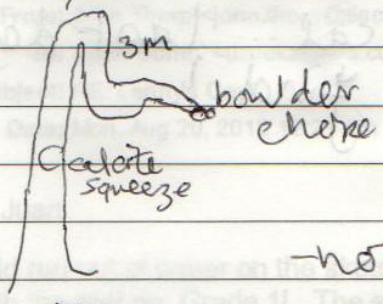 3m
bowlder
choke
Calcite
squeeze
-no